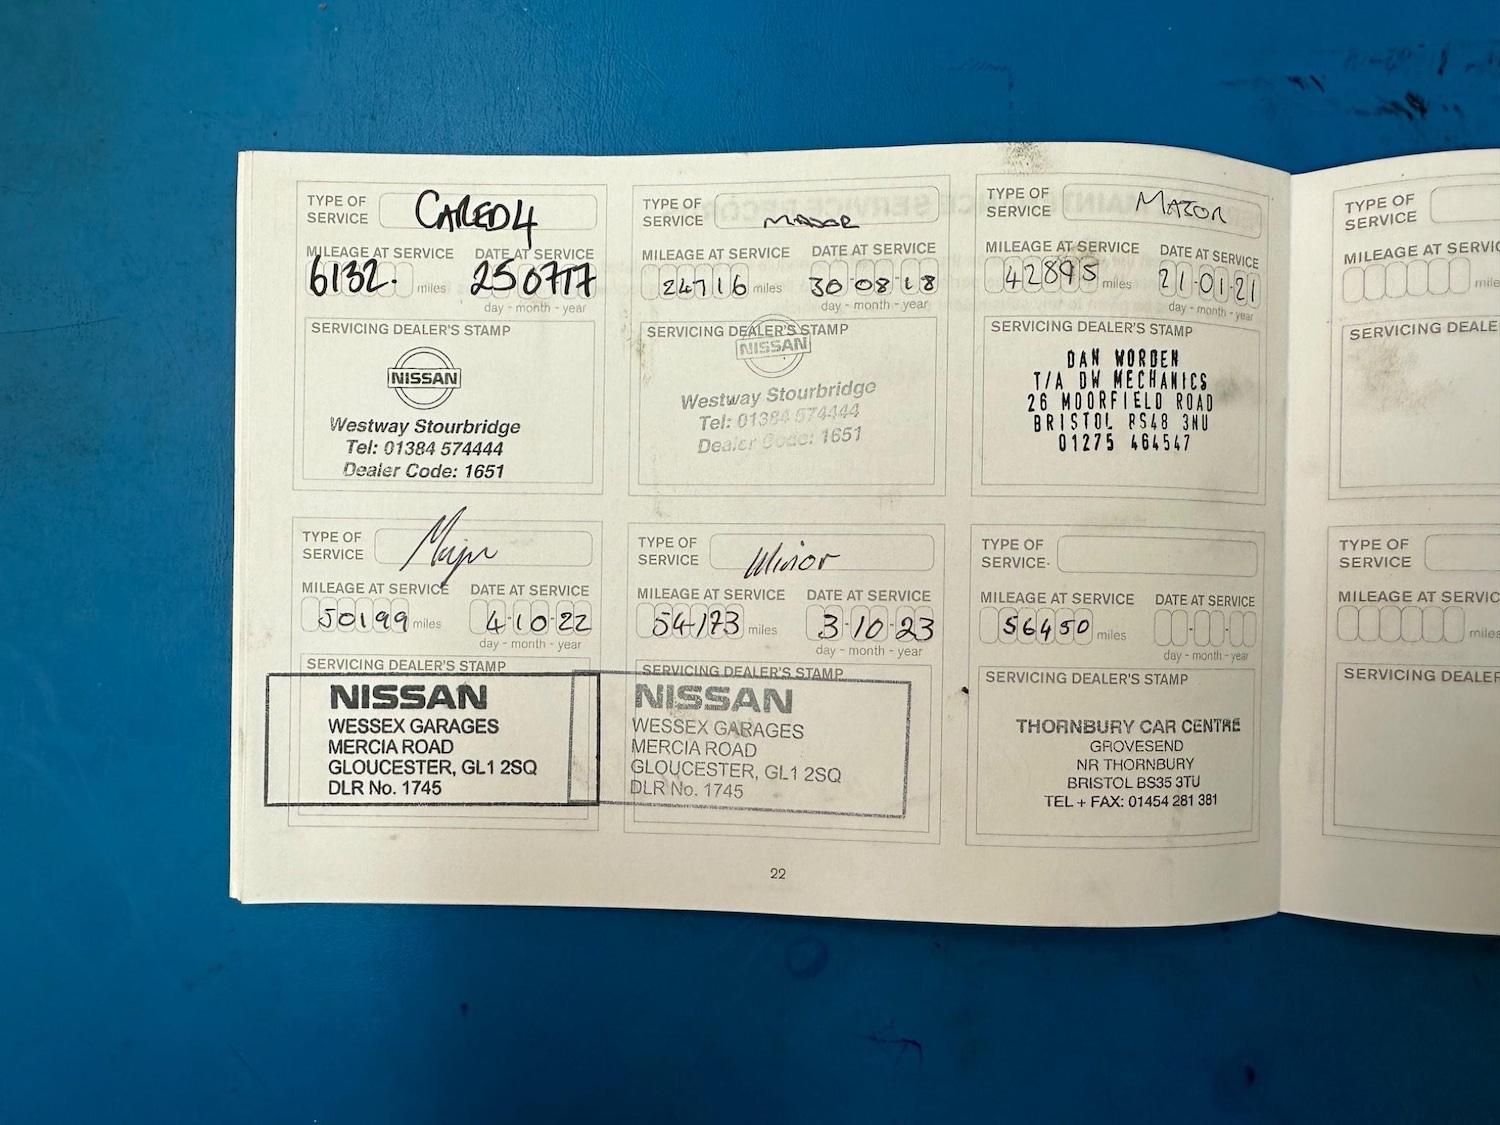 TYPE OF
SERVICE
CARED4
MILEAGE AT SERVICE
DATE AT SERVICE
6132. miles
250717
day - month - year
SERVICING DEALER'S STAMP
NISSAN
Westway Stourbridge
Tel: 01384 574444
Dealer Code: 1651
TYPE OF
SERVICE
MAJOR
MILEAGE AT SERVICE
DATE AT SERVICE
24716 miles
30-08-18
day - month - year
SERVICING DEALER'S STAMP
NISSAN
Westway Stourbridge
Tel: 01384 574444
Dealer Code: 1651
TYPE OF
SERVICE
MAJOR
MILEAGE AT SERVICE
DATE AT SERVICE
42895 miles
21-01-21
day - month - year
SERVICING DEALER'S STAMP
DAN WORDEN
T/A DW MECHANICS
26 MOORFIELD ROAD
BRISTOL BS48 3NU
01275 464547
TYPE OF
SERVICE
MILEAGE AT SERVIC
mile
SERVICING DEALE
TYPE OF
SERVICE
Major
MILEAGE AT SERVICE
DATE AT SERVICE
50199 miles
4-10-22
day - month - year
SERVICING DEALER'S STAMP
NISSAN
WESSEX GARAGES
MERCIA ROAD
GLOUCESTER, GL1 2SQ
DLR No. 1745
TYPE OF
SERVICE
Minor
MILEAGE AT SERVICE
DATE AT SERVICE
54173 miles
3-10-23
day - month - year
SERVICING DEALER'S STAMP
NISSAN
WESSEX GARAGES
MERCIA ROAD
GLOUCESTER, GL1 2SQ
DLR No. 1745
TYPE OF
SERVICE
MILEAGE AT SERVICE
DATE AT SERVICE
56450 miles
day - month - year
SERVICING DEALER'S STAMP
THORNBURY CAR CENTRE
GROVESEND
NR THORNBURY
BRISTOL BS35 3TU
TEL + FAX: 01454 281 381
TYPE OF
SERVICE
MILEAGE AT SERVIC
miles
SERVICING DEALER
22